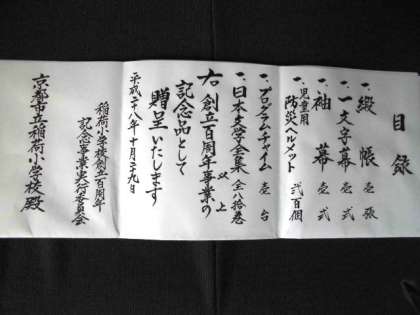 目録
一、緞帳 壱張
一、一文字幕 壱式
一、袖幕 壱式
一、児童用防災ヘルメット 弐百個
一、プログラムチャイム 壱台
一、日本文学全集 全八拾巻
以上
右、創立百周年事業の
記念品として
贈呈いたします
平成二十八年十月二十九日
稲荷小学校創立百周年
記念事業実行委員会
京都市立稲荷小学校殿